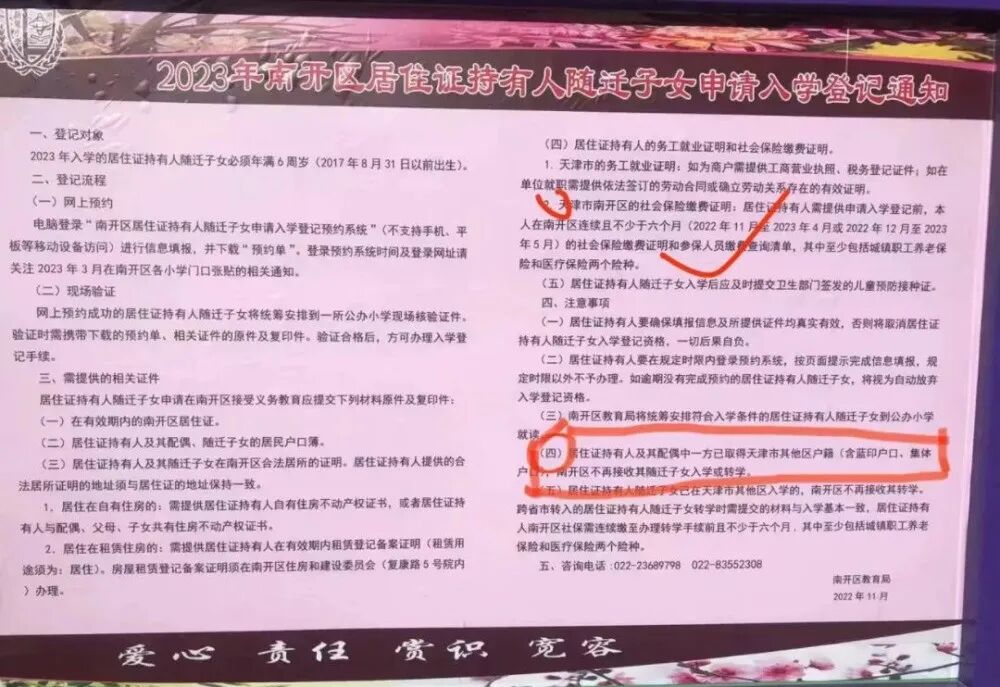 2023年南开区居住证持有人随迁子女申请入学登记通知
一、登记对象
2023 年入学的居住证持有人随迁子女必须年满 6 周岁（2017 年 8 月 31 日以前出生）。
二、登记流程
（一）网上预约
电脑登录“南开区居住证持有人随迁子女申请入学登记预约系统”（不支持手机、平
板等移动设备访问）进行信息填报，并下载“预约单”。登录预约系统时间及登录网址请
关注 2023 年 3 月在南开区各小学门口张贴的相关通知。
（二）现场验证
网上预约成功的居住证持有人随迁子女将统筹安排到一所公办小学现场核验证件。
验证时需携带下载的预约单、相关证件的原件及复印件。验证合格后，方可办理入学登
记手续。
三、需提供的相关证件
居住证持有人随迁子女申请在南开区接受义务教育应提交下列材料原件及复印件：
（一）在有效期内的南开区居住证。
（二）居住证持有人及其配偶、随迁子女的居民户口簿。
（三）居住证持有人及其随迁子女在南开区合法居所的证明。居住证持有人提供的合
法居所证明的地址须与居住证的地址保持一致。
1．居住在自有住房的：需提供居住证持有人自有住房不动产权证书，或者居住证持
有人与配偶、父母、子女共有住房不动产权证书。
2．居住在租赁住房的：需提供居住证持有人在有效期内租赁登记备案证明（租赁用
途须为：居住）。房屋租赁登记备案证明须在南开区住房和建设委员会（复康路 5 号院内
）办理。
（四）居住证持有人的务工就业证明和社会保险缴费证明。
1．天津市的务工就业证明：如为商户需提供工商营业执照、税务登记证件；如在
单位就职需提供依法签订的劳动合同或确立劳动关系存在的有效证明。
2．天津市南开区的社会保险缴费证明：居住证持有人需提供申请入学登记前，本
人在南开区连续且不少于六个月（2022 年 11 月至 2023 年 4 月或 2022 年 12 月至 2023
年 5 月）的社会保险缴费证明和参保人员缴费查询清单，其中至少包括城镇职工养老保
险和医疗保险两个险种。
（五）居住证持有人随迁子女入学后应及时提交卫生部门签发的儿童预防接种证。
四、注意事项
（一）居住证持有人要确保填报信息及所提供证件均真实有效，否则将取消居住证
持有人随迁子女入学登记资格，一切后果自负。
（二）居住证持有人要在规定时限内登录预约系统，按页面提示完成信息填报，规
定时限以外不予办理。如逾期没有完成预约的居住证持有人随迁子女，将视为自动放弃
入学登记资格。
（三）南开区教育局将统筹安排符合入学条件的居住证持有人随迁子女到公办小学
就读。
（四）居住证持有人及其配偶中一方已取得天津市其他区户籍（含蓝印户口、集体
户口），南开区不再接收其随迁子女入学或转学。
（五）居住证持有人随迁子女已在天津市其他区入学的，南开区不再接收其转学。
跨省市转入的居住证持有人随迁子女转学时需提交的材料与入学基本一致，居住证持有
人南开区社保需连续缴至办理转学手续前且不少于六个月，其中至少包括城镇职工养老
保险和医疗保险两个险种。
五、咨询电话：022-23689798 022-83552308
南开区教育局
2022 年 11 月
爱心 责任 赏识 宽容